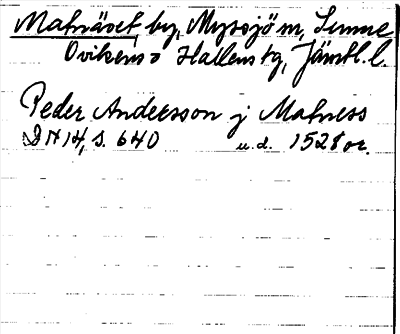 Matnäset, by, Myssjö sn, Sunne
Ovikens o Hallens tg, Jämtl. l.
Peder Andersson j Matness
DN 14, s. 640 u.d. 1528 or.